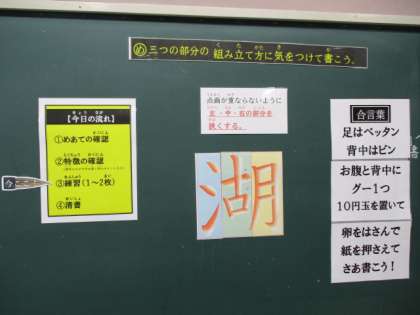 め 三つの部分の 組み立て方に気をつけて書こう。
【今日の流れ】
①めあての確認
②特徴の確認
③練習(1～2枚)
④清書
今
点画が重ならないように
左・中・右の部分を
狭くする。
湖
合言葉
足はペッタン
背中はピン
お腹と背中に
グー1つ
10円玉を置いて
卵をはさんで
紙を押さえて
さあ書こう!